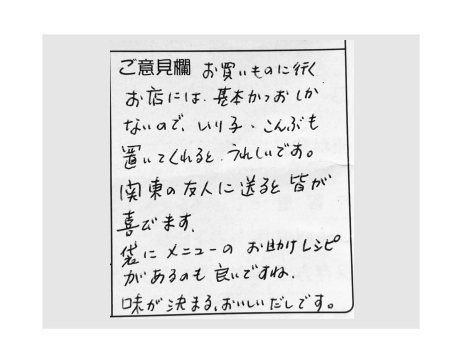 ご意見欄 お買いものに行く
お店には、基本かつおしか
ないので、いりこ・こんぶも
置いてくれると、うれしいです。
関東の友人に送ると皆が
喜びます。
袋にメニューのお助けレシピ
があるのも良いですね。
味が決まる、おいしいだしです。